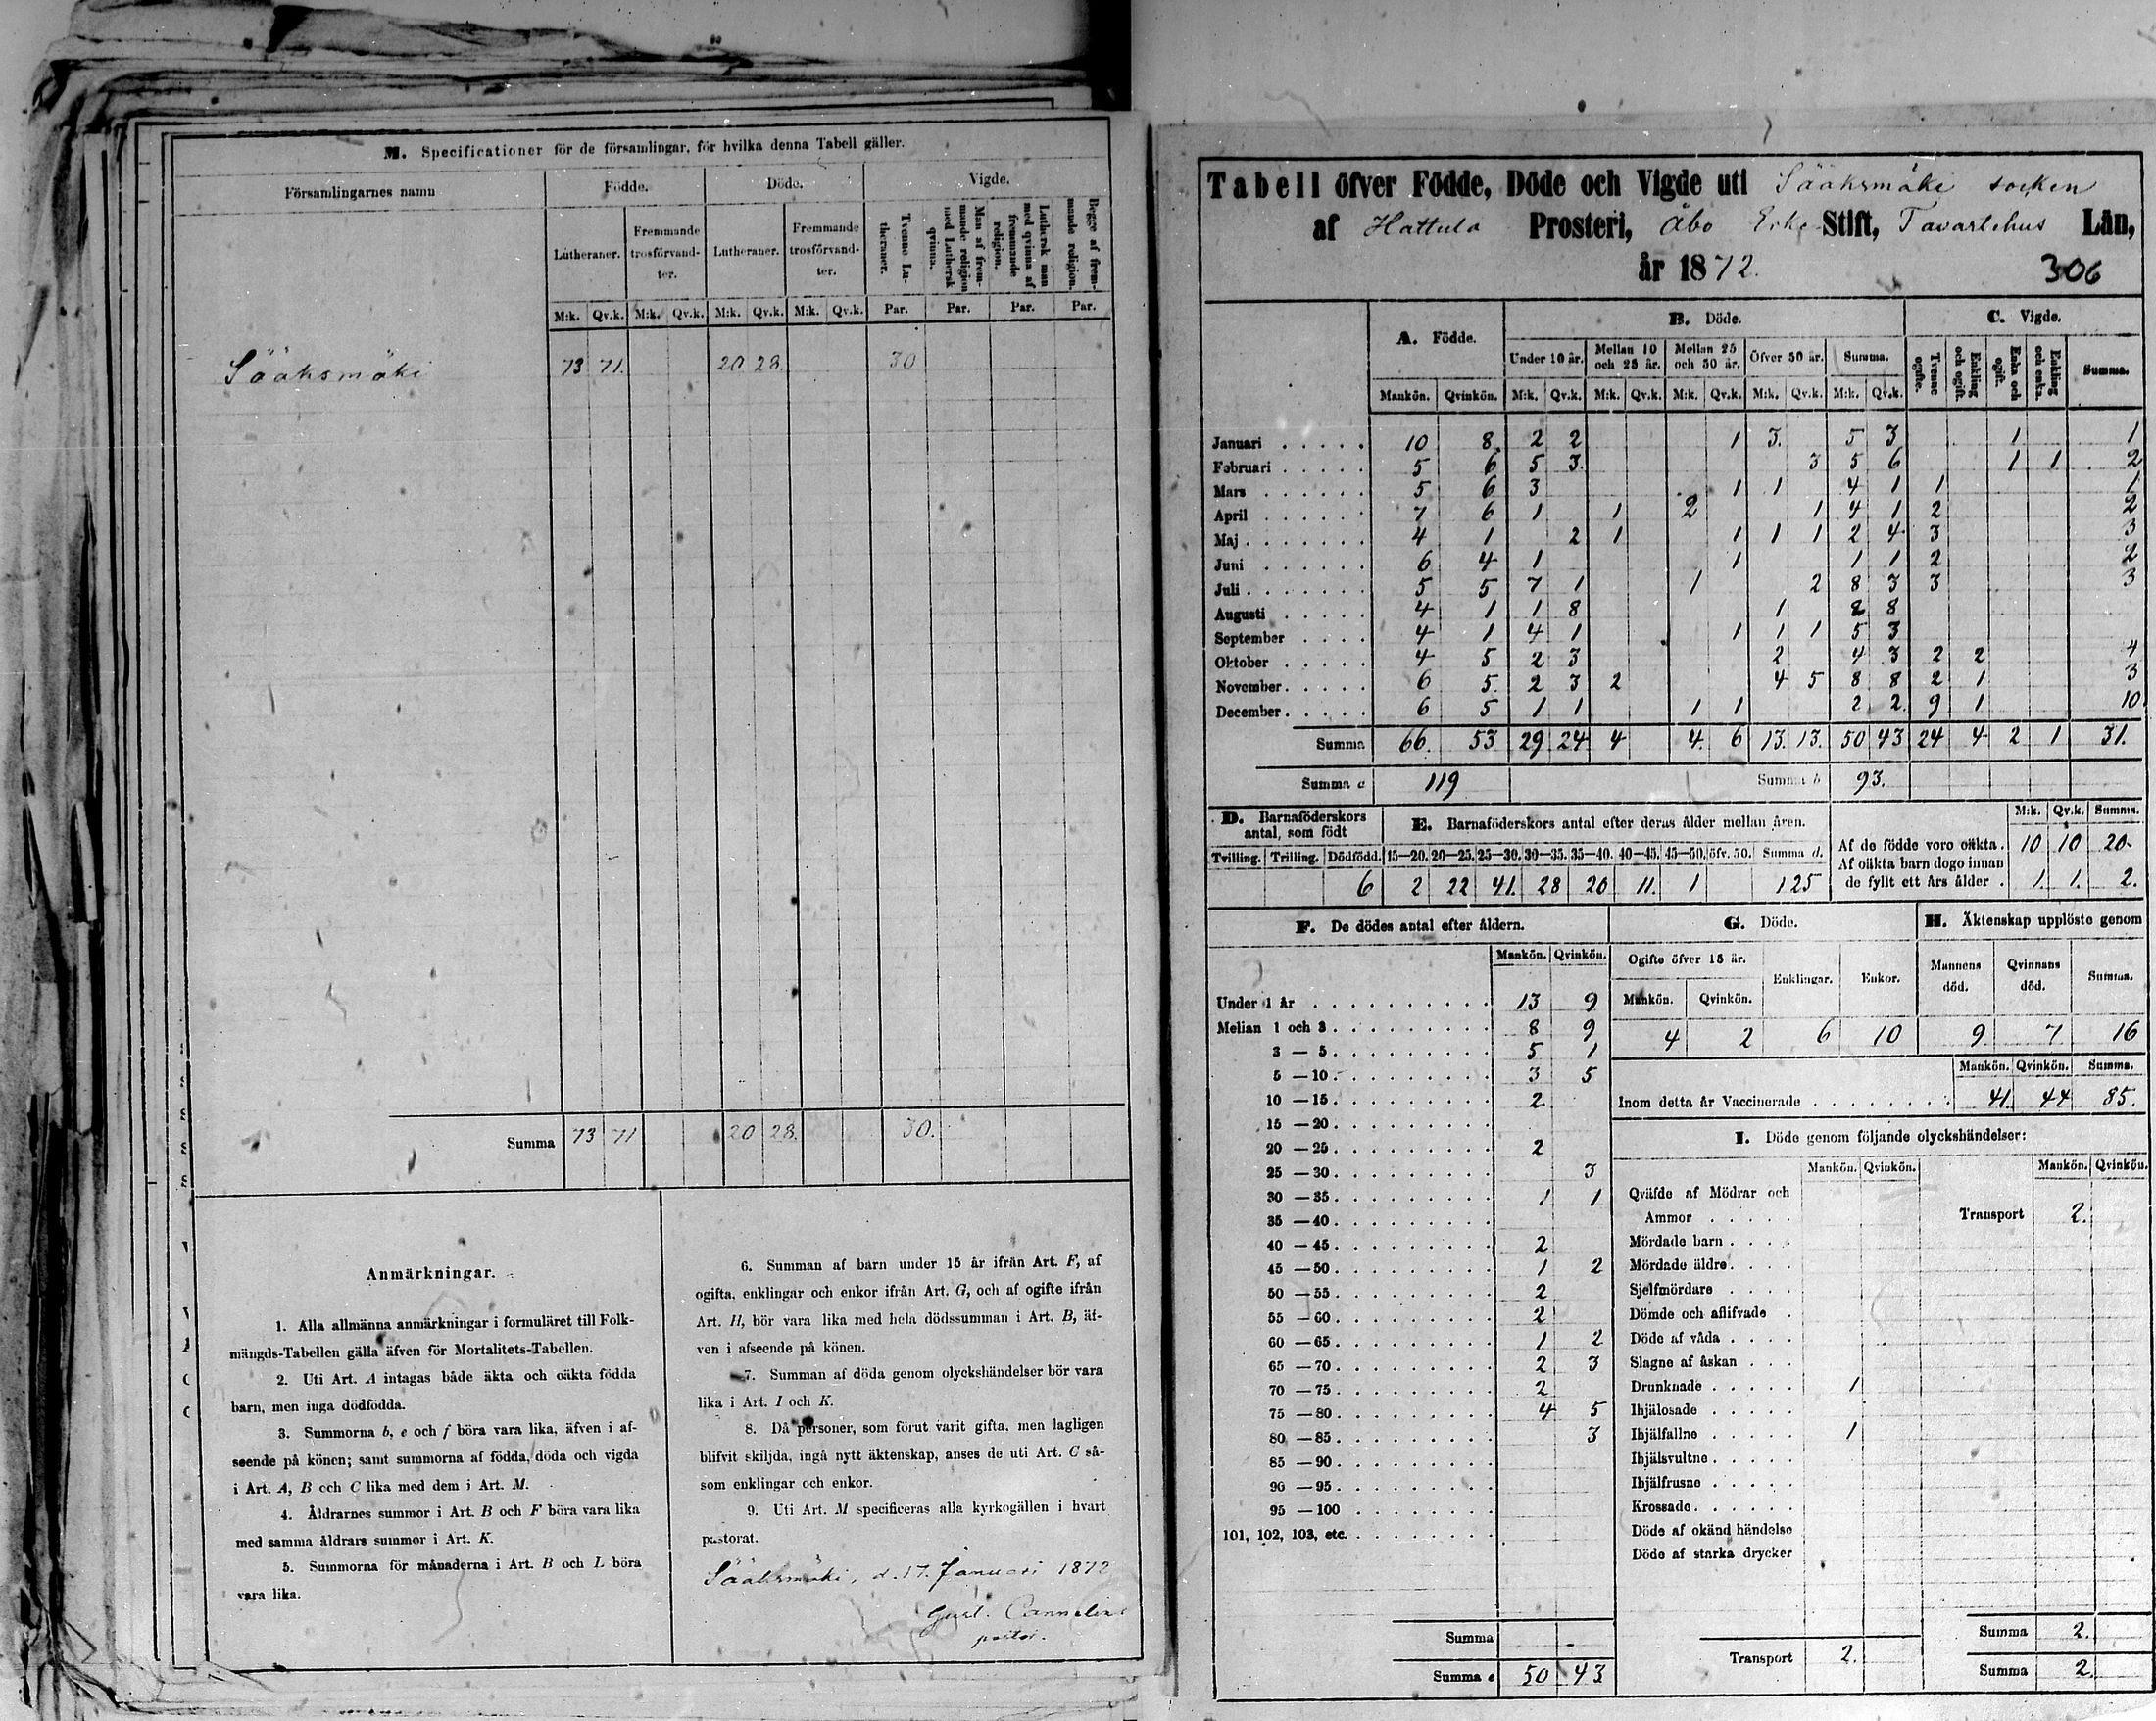 M. Specificationer för de församlingar, för hvilka denna Tabell gäller.
Församlingarnes namn
Födde. Döde. Vigde.
Lutheraner. Fremmande trosförvandter. Lutheraner. Fremmande trosförvandter. Tvenne Lutheraner. Man af fremmande religion med Luthersk qvinna. Luthersk man med qvinna af fremmande religion. Begge af fremmande religion.
M:k. Qv.k. M:k. Qv.k. M:k. Qv.k. M:k. Qv.k. Par. Par. Par. Par.
Sääksmäki 73 71. 20 28. 30
Summa 73 71 20 28. 30.
Anmärkningar.
1. Alla allmänna anmärkningar i formuläret till Folk-
mängds-Tabellen gälla äfven för Mortalitets-Tabellen.
2. Uti Art. A intagas både äkta och oäkta födda
barn, men inga dödfödda.
3. Summorna b, e och f böra vara lika, äfven i af-
seende på könen; samt summorna af födda, döda och vigda
i Art. A, B och C lika med dem i Art. M.
4. Åldrarnes summor i Art. B och F böra vara lika
med samma åldrars summor i Art. K.
5. Summorna för månaderna i Art. B och L böra
vara lika.
6. Summan af barn under 15 år ifrån Art. F, af
ogifta, enklingar och enkor ifrån Art. G, och af ogifte ifrån
Art. H, bör vara lika med hela dödssumman i Art. B, äf-
ven i afseende på könen.
7. Summan af döda genom olyckshändelser bör vara
lika i Art. I och K.
8. Då personer, som förut varit gifta, men lagligen
blifvit skiljda, ingå nytt äktenskap, anses de uti Art. C så-
som enklingar och enkor.
9. Uti Art. M specificeras alla kyrkogällen i hvart
pastorat.
Sääksmäki, d. 17. Januari 1872
Gust. Cannelin
pastor.
Tabell öfver Födde, Döde och Vigde uti Sääksmäki socken
af Hattula Prosteri, Åbo Erke Stift, Tavastehus Län,
år 1872. 306
A. Födde. B. Döde. C. Vigde.
Under 10 år. Mellan 10 och 25 år. Mellan 25 och 50 år. Öfver 50 år. Summa. Tvenne ogifte. Enkling och ogift. Enka och ogift. Enkling och enka. Summa.
Mankön. Qvinkön. M:k. Qv.k. M:k. Qv.k. M:k. Qv.k. M:k. Qv.k. M:k. Qv.k.
Januari 10 8 2 2 1 3. 5 3 1 1
Februari 5 6 5 3. 3 5 6 1 1 2
Mars 5 6 3 1 1 4 1 1 1
April 7 6 1 1 2 1 4 1 2 2
Maj 4 1 2 1 1 1 1 2 4 3 3
Juni 6 4 1 1 1 1 2 2
Juli 5 5 7 1 1 2 8 3 3 3
Augusti 4 1 1 8 1 2 8
September 4 1 4 1 1 1 1 5 3
Oktober 4 5 2 3 2 4 3 2 2 4
November 6 5 2 3 2 4 5 8 8 2 1 3
December 6 5 1 1 1 1 2 2 9 1 10
Summa 66. 53 29 24 4 4. 6 13. 13. 50 43 24 4 2 1 31.
Summa c 119 Summa b 93.
D. Barnaföderskors antal, som födt
E. Barnaföderskors antal efter deras ålder mellan åren.
M:k. Qv.k. Summa.
Tvilling. Trilling. Dödfödd. 15—20. 20—25. 25—30. 30—35. 35—40. 40—45. 45—50. öfv. 50. Summa d.
6 2 22 41. 28 20 11. 1 125
Af de födde voro oäkta. 10 10 20
Af oäkta barn dogo innan
de fyllt ett års ålder . 1. 1. 2.
F. De dödes antal efter åldern.
Mankön. Qvinkön.
Under 1 år 13 9
Mellan 1 och 3 8 9
3 — 5 5 1
5 — 10 3 5
10 — 15 2
15 — 20
20 — 25 2
25 — 30 3
30 — 35 1 1
35 — 40
40 — 45 2
45 — 50 1 2
50 — 55 2
55 — 60 2
60 — 65 1 2
65 — 70 2 3
70 — 75 2
75 — 80 4 5
80 — 85 3
85 — 90
90 — 95
95 — 100
101, 102, 103, etc.
Summa
Summa e 50 43
G. Döde.
Ogifte öfver 15 år. Enklingar. Enkor.
Mankön. Qvinkön.
4 2 6 10
H. Äktenskap upplöste genom
Mannens död. Qvinnans död. Summa.
9 7 16
Mankön. Qvinkön. Summa.
Inom detta år Vaccinerade 41. 44 85.
I. Döde genom följande olyckshändelser:
Mankön. Qvinkön. Mankön. Qvinkön.
Qväfde af Mödrar och
Ammor Transport 2.
Mördade barn
Mördade äldre
Sjelfmördare
Dömde och aflifvade
Döde af våda
Slagne af åskan
Drunknade 1
Ihjälosade
Ihjälfallne 1
Ihjälsvultne
Ihjälfrusne
Krossade
Döde af okänd händelse
Döde af starka drycker
Summa 2.
Transport 2. Summa 2.